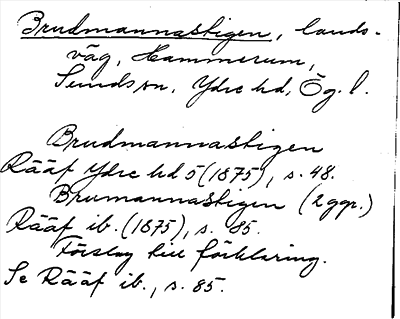 Brudmannastigen, lands-
väg, Hammerum,
Sunds sn, Ydre hd, Ög. l.
Brudmannastigen
Rääf Ydre hd 5 (1875), s. 48.
Brumannastigen (2 ggr.)
Rääf ib. (1875), s. 85.
Förslag till förklaring.
Se Rääf ib., s. 85.